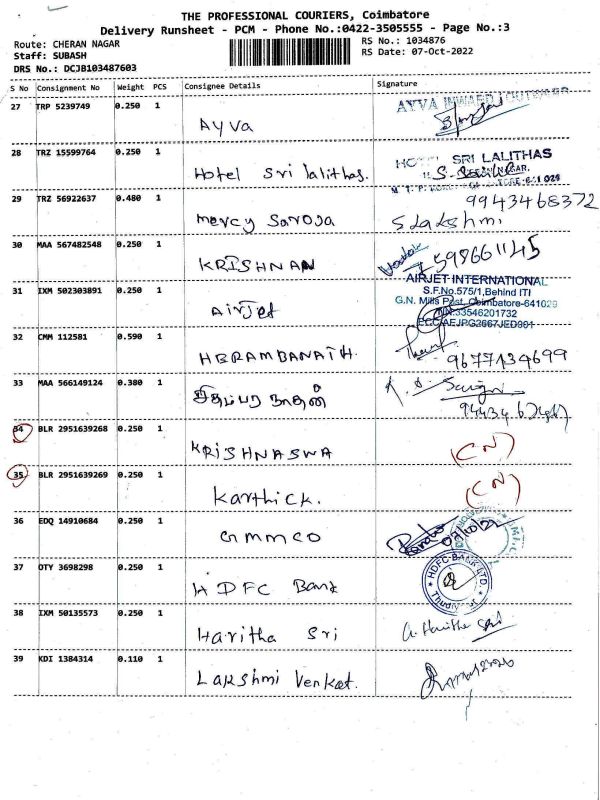 THE PROFESSIONAL COURIERS, Coimbatore
Delivery Runsheet - PCM - Phone No.:0422-3505555 - Page No.:3
Route: CHERAN NAGAR RS No.: 1034876
Staff: SUBASH RS Date: 07-Oct-2022
DRS No.: DCJB103487603
S No Consignment No Weight PCS Consignee Details Signature
27 TRP 5239749 0.250 1 Ayva AYVA INWARD
28 TRZ 15599764 0.250 1 Hotel Sri lalithas. SRI LALITHAS
29 TRZ 56922637 0.480 1 mercy Saroja S Lakshmi 9943468372
30 MAA 567482548 0.250 1 KRISHNAN
31 IXM 502303891 0.250 1 Airjet AIRJET INTERNATIONAL
S.F.No.575/1,Behind ITI
G.N. Mills Post, Coimbatore-641029
33546201732
32 CMM 112581 0.590 1 9677134699
33 MAA 566149124 0.380 1 சிதம்பர நாதன்
34 BLR 2951639268 0.250 1 KRISHNASWA (CN)
35 BLR 2951639269 0.250 1 Karthick. (CN)
36 EDQ 14910684 0.250 1 GMMCO
37 OTY 3698298 0.250 1 HDFC Bank HDFC BANK LTD.
38 IXM 50135573 0.250 1 Haritha Sri
39 KDI 1384314 0.110 1 Lakshmi Venkat.